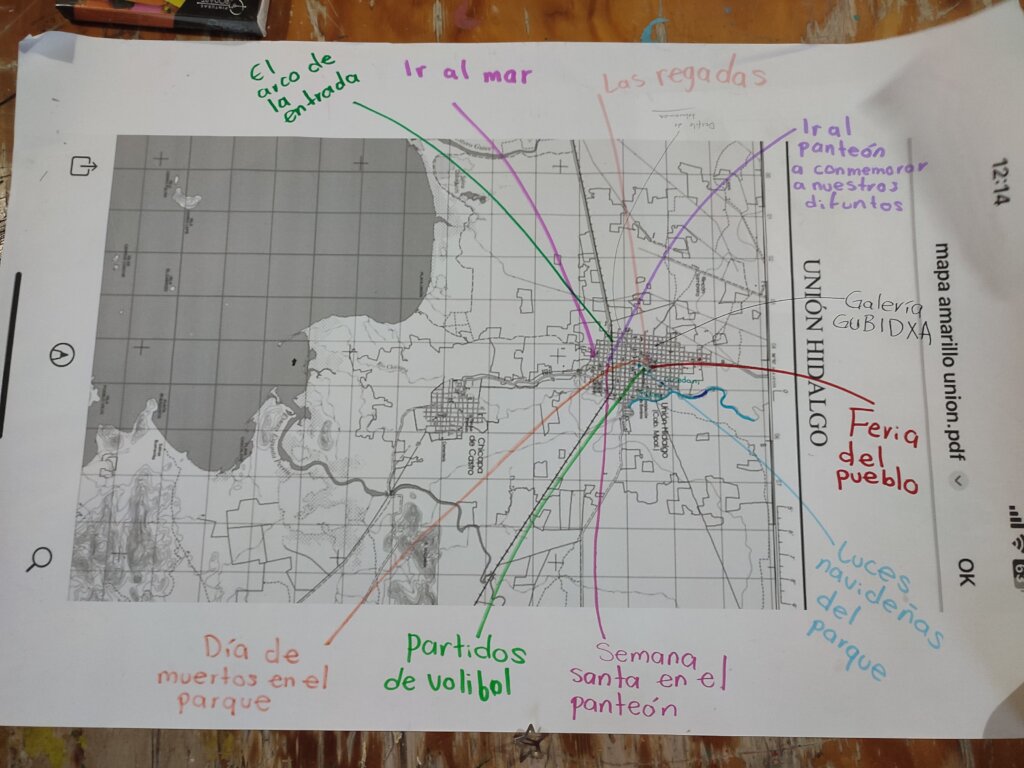 El
arco de
la
entrada
Ir al mar
Las regadas
Ir al
panteón
a conmemorar
a nuestros
difuntos
Galería
GUBIDXA
Feria
del
pueblo
Luces
navideñas
del
parque
Semana
santa en el
panteón
Partidos
de volibol
Día de
muertos en el
parque
UNIÓN HIDALGO
Unión Hidalgo
Chicapa
de Castro
12:14
mapa amarillo union.pdf
OK
63